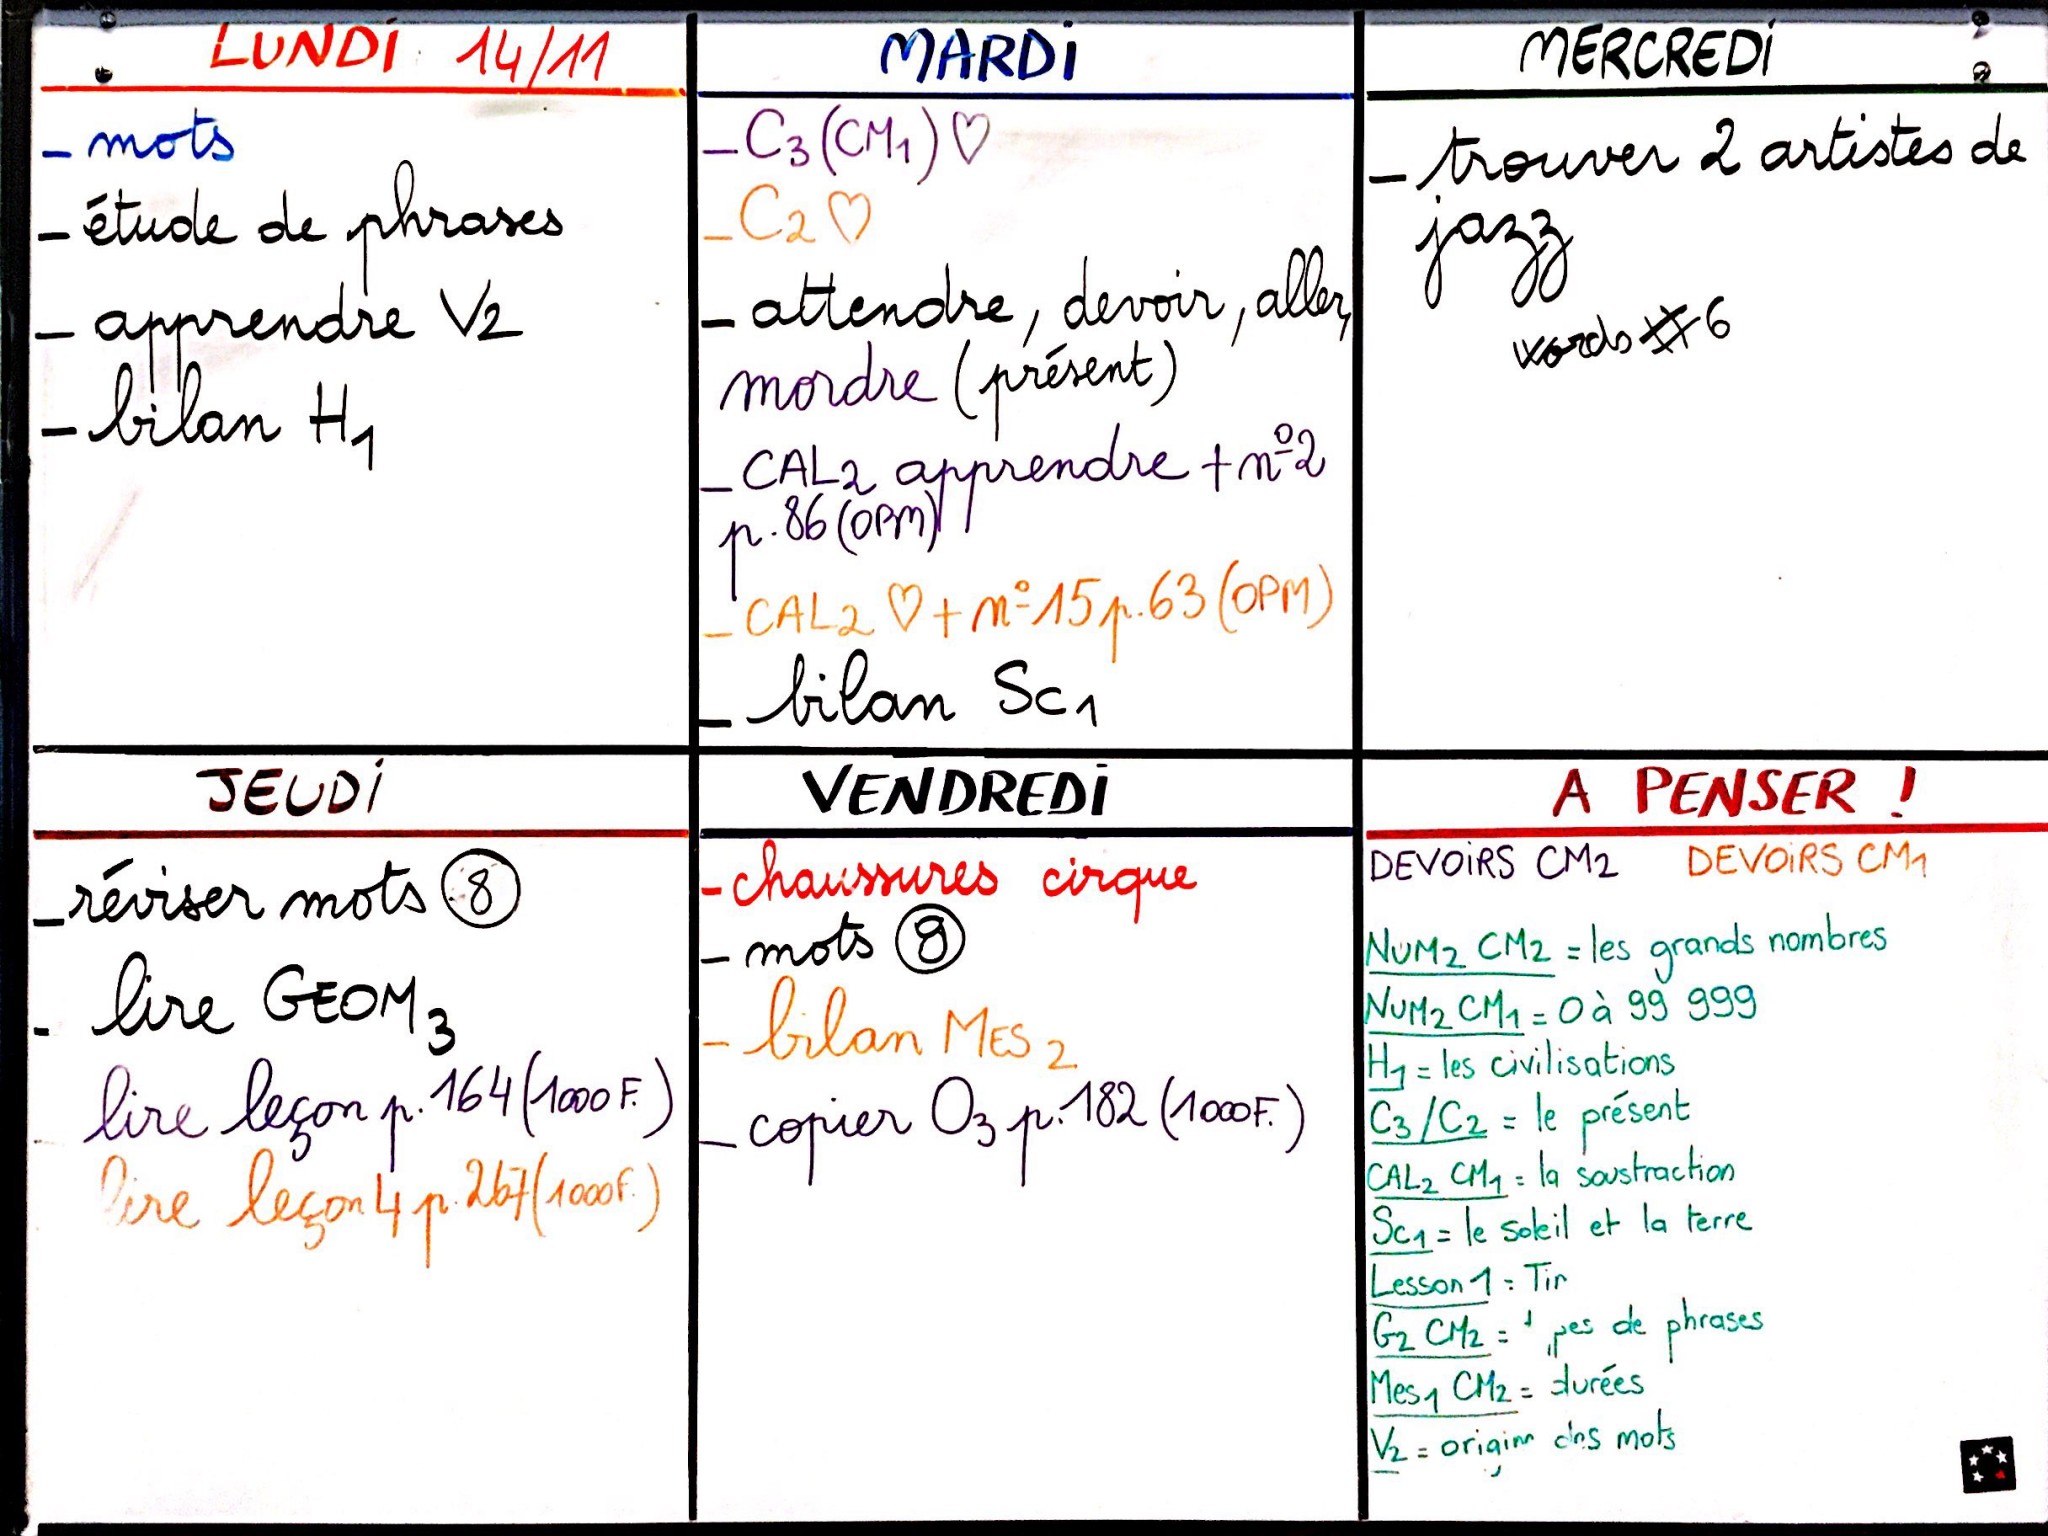 LUNDI 14/11
- mots
- étude de phrases
- apprendre V2
- bilan H1
MARDI
- C3 (CM1) ♡
- C2 ♡
- attendre, devoir, aller,
mordre (présent)
- CAL2 apprendre + n°2
p. 86 (OPM)
- CAL2 ♡ + n°15 p. 63 (OPM)
- bilan Sc1
MERCREDI
- trouver 2 artistes de
jazz
words #6
JEUDI
- réviser mots 8
- lire GEOM3
- lire leçon p. 164 (1000 F.)
lire leçon 4 p. 267 (1000F.)
VENDREDI
- chaussures cirque
- mots 8
- bilan MES2
- copier O3 p. 182 (1000F.)
A PENSER !
DEVOIRS CM2 DEVOIRS CM1
NUM2 CM2 = les grands nombres
NUM2 CM1 = 0 à 99 999
H1 = les civilisations
C3/C2 = le présent
CAL2 CM1 = la soustraction
Sc1 = le soleil et la terre
Lesson 1 =
G2 CM2 = de phrases
Mes1 CM2 = durées
V2 = mots